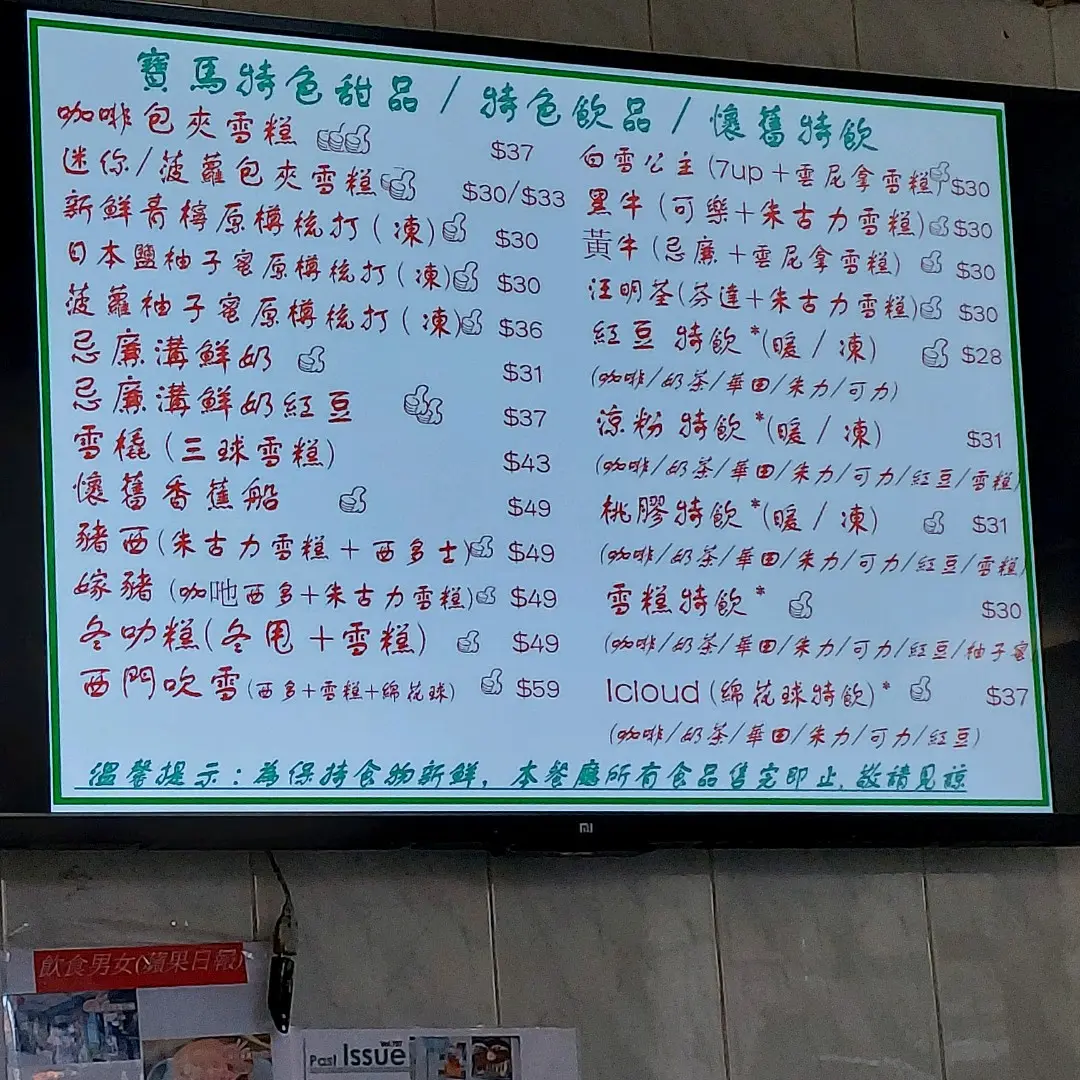 寶馬特色甜品 / 特色飲品 / 懷舊特飲
咖啡包夾雪糕 $37
迷你/菠蘿包夾雪糕 $30/$33
新鮮青檸原樽梳打 (凍) $30
日本鹽柚子蜜原樽梳打 (凍) $30
菠蘿柚子蜜原樽梳打 (凍) $36
忌廉溝鮮奶 $31
忌廉溝鮮奶紅豆 $37
雪橇 (三球雪糕) $43
懷舊香蕉船 $49
豬西 (朱古力雪糕 + 西多士) $49
嫁豬 (咖吔西多+朱古力雪糕) $49
冬叻糕 (冬甩 + 雪糕) $49
西門吹雪 (西多+雪糕+綿花球) $59
白雪公主 (7up + 雲尼拿雪糕) $30
黑牛 (可樂 + 朱古力雪糕) $30
黃牛 (忌廉 + 雲尼拿雪糕) $30
汪明荃 (芬達 + 朱古力雪糕) $30
紅豆特飲 *(暖 / 凍) $28
(咖啡/奶茶/華田/朱力/可力)
涼粉特飲 *(暖 / 凍) $31
(咖啡/奶茶/華田/朱力/可力/紅豆/雪糕)
桃膠特飲 *(暖 / 凍) $31
(咖啡/奶茶/華田/朱力/可力/紅豆/雪糕)
雪糕特飲 * $30
(咖啡/奶茶/華田/朱力/可力/紅豆/柚子蜜
Icloud (綿花球特飲) * $37
(咖啡/奶茶/華田/朱力/可力/紅豆)
溫馨提示 : 為保持食物新鮮, 本餐廳所有食品售完即止, 敬請見諒
mi
飲食男女(蘋果日報)
Past Issue